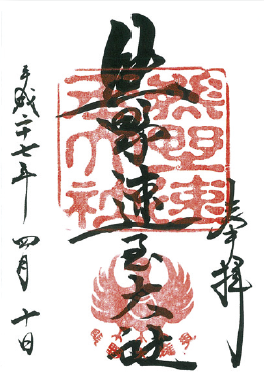 奉拝
熊野速玉大社
平成二十七年 四月 十日
熊野速玉大社